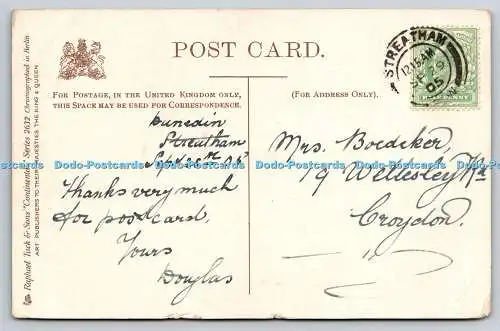 POST CARD.
FOR POSTAGE, IN THE UNITED KINGDOM ONLY,
THIS SPACE MAY BE USED FOR CORRESPONDENCE.
(FOR ADDRESS ONLY).
Dunedin
Streatham
05
Thanks very much
for postcard.
Yours
Douglas
Mrs. Boedeker.
9 Wellesley Rd
Croydon.
STREATHAM
12.15AM
05
HALFPENNY
Raphael Tuck & Sons' "Continental" Series 2632 Chromographed in Berlin
ART PUBLISHERS TO THEIR MAJESTIES THE KING & QUEEN
Dodo-Postcards Dodo-Postcards Dodo-Postcards Dodo-Postcards Dodo-Postcards